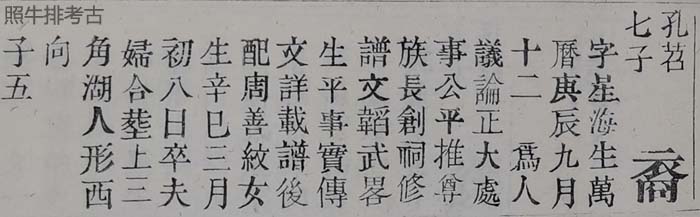 照牛排考古
孔苕
七子
云裔
字星海生萬
曆庚辰九月
十二 爲人
議論正大處
事公平推尊
族長創祠修
譜文韜武畧
生平事實傳
文詳載譜後
配周善紋女
生辛巳三月
初八日卒夫
婦合塟上三
角湖人形西
向
子五